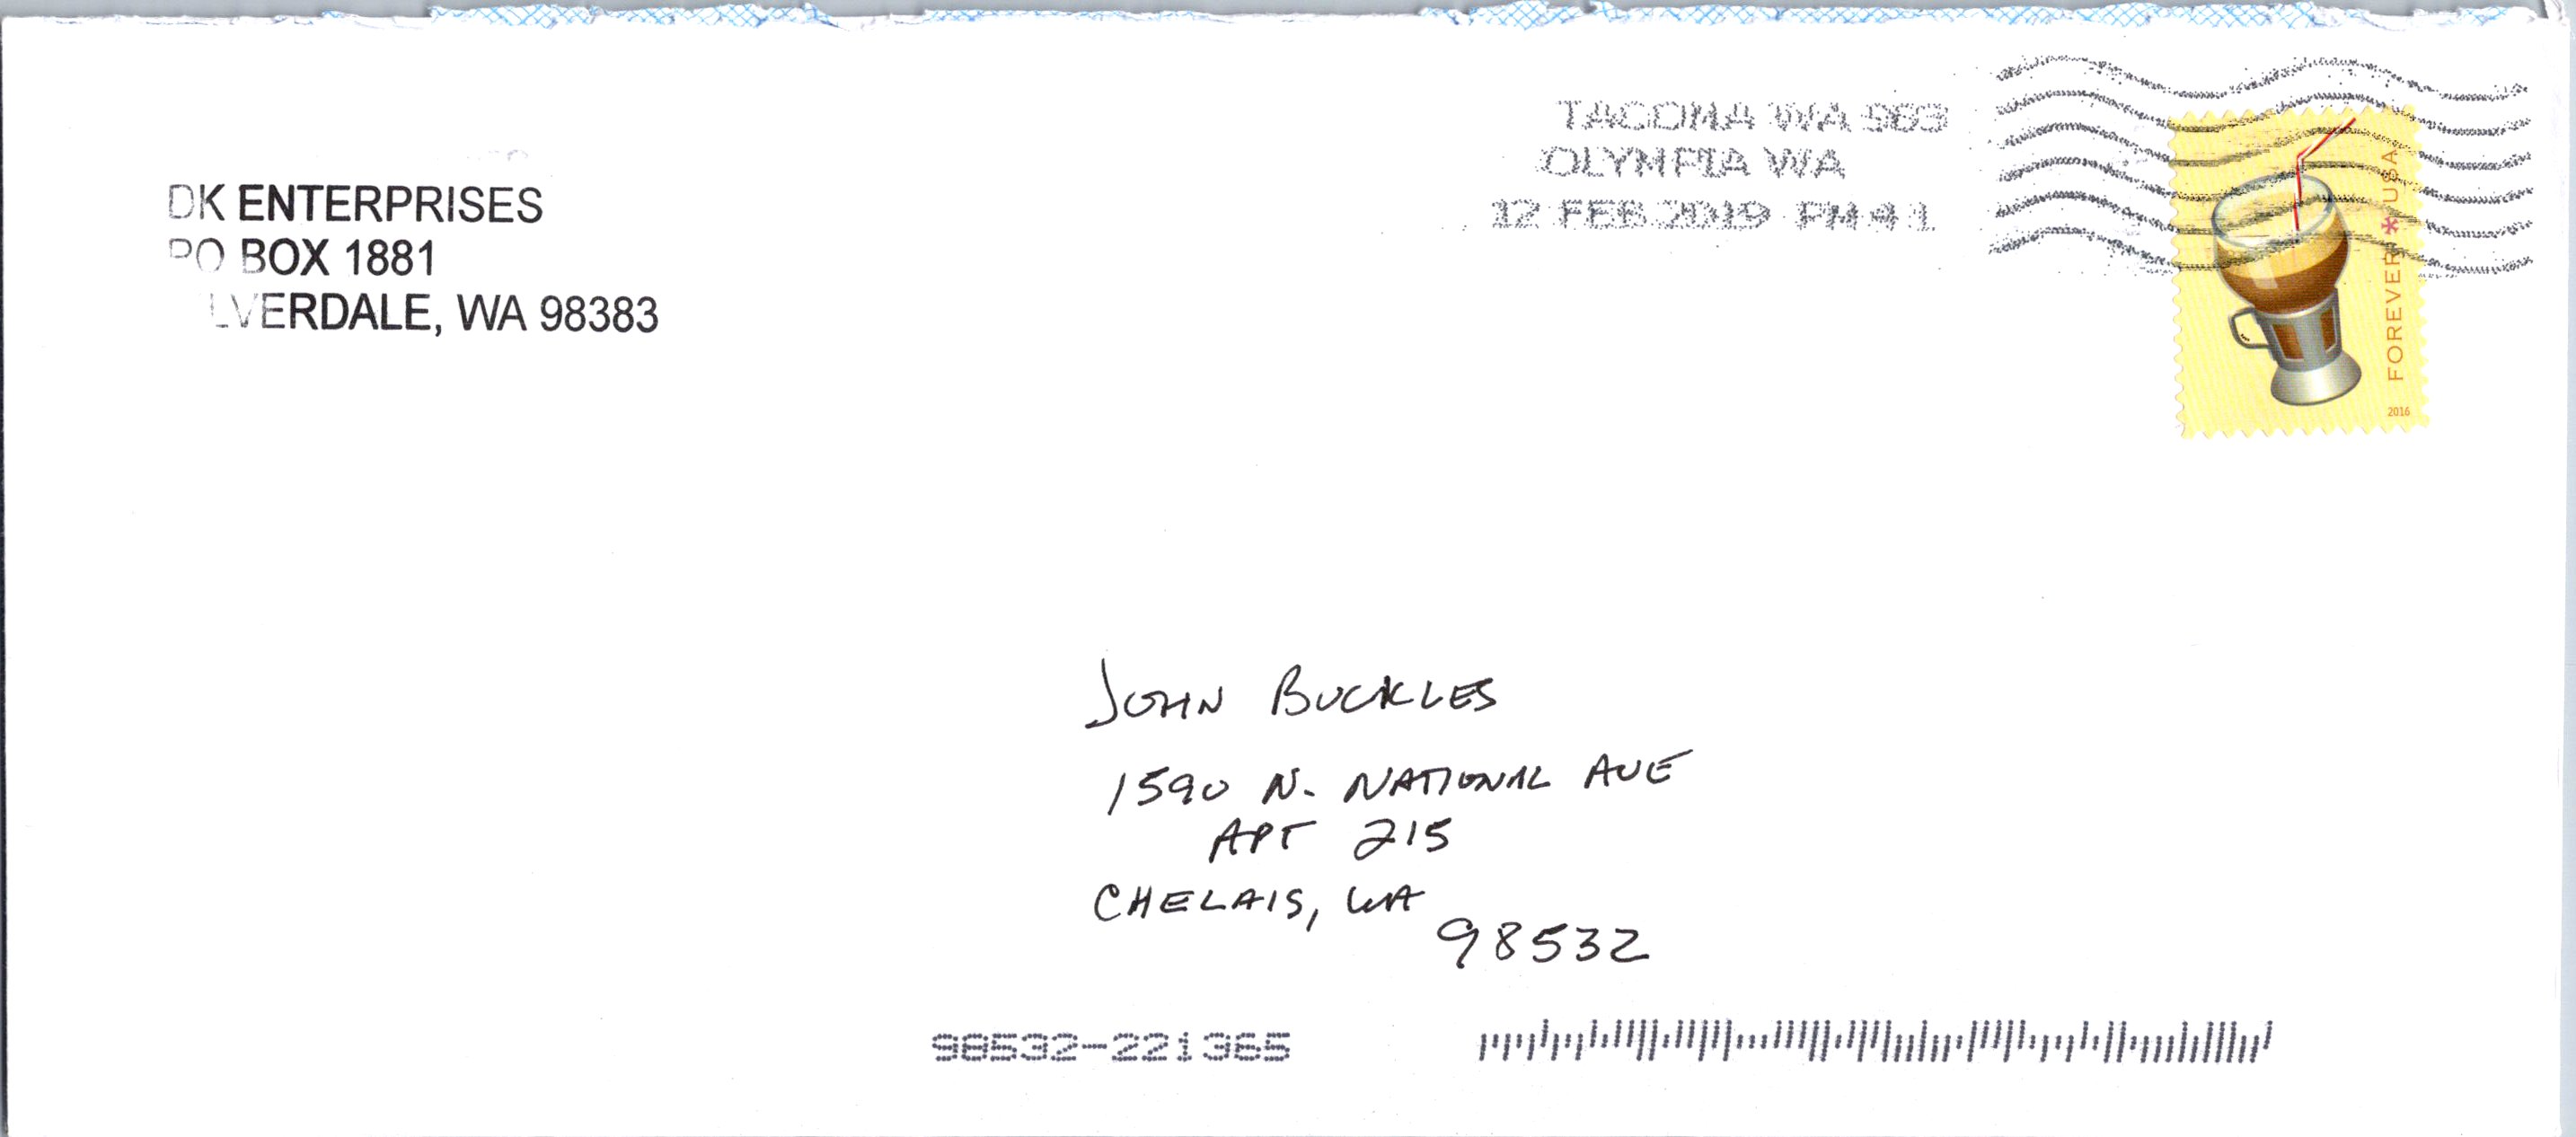 DK ENTERPRISES
PO BOX 1881
LVERDALE, WA 98383
TACOMA WA 983
OLYMPIA WA
12 FEB 2019 PM 4 1
FOREVER * USA
2016
JOHN BUCKLES
1590 N. NATIONAL AVE
APT 215
CHELAIS, WA
98532
98532-221365